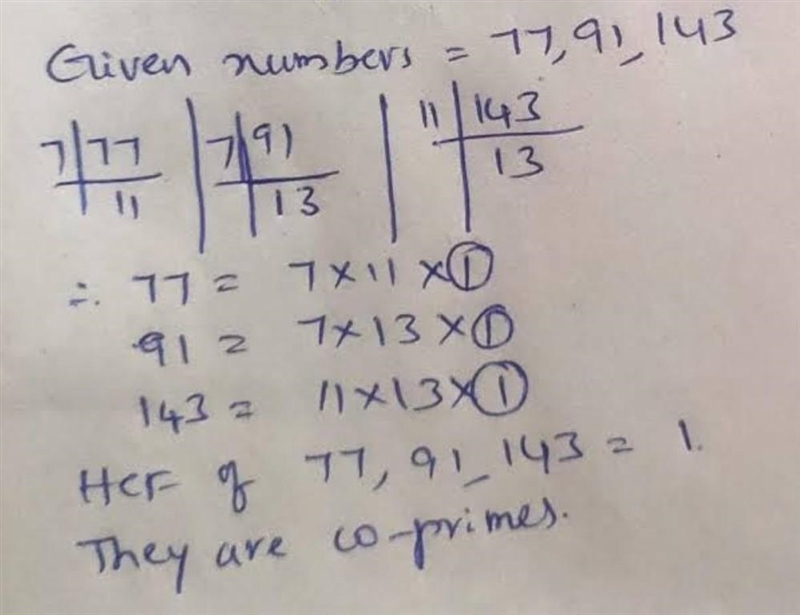 Given numbers = 77, 91, 143
7 | 77 | 7 | 91 | 11 | 143
11 | 13 | 13
∴ 77 = 7 × 11 × 1
91 = 7 × 13 × 1
143 = 11 × 13 × 1
HCF of 77, 91, 143 = 1.
They are co-primes.